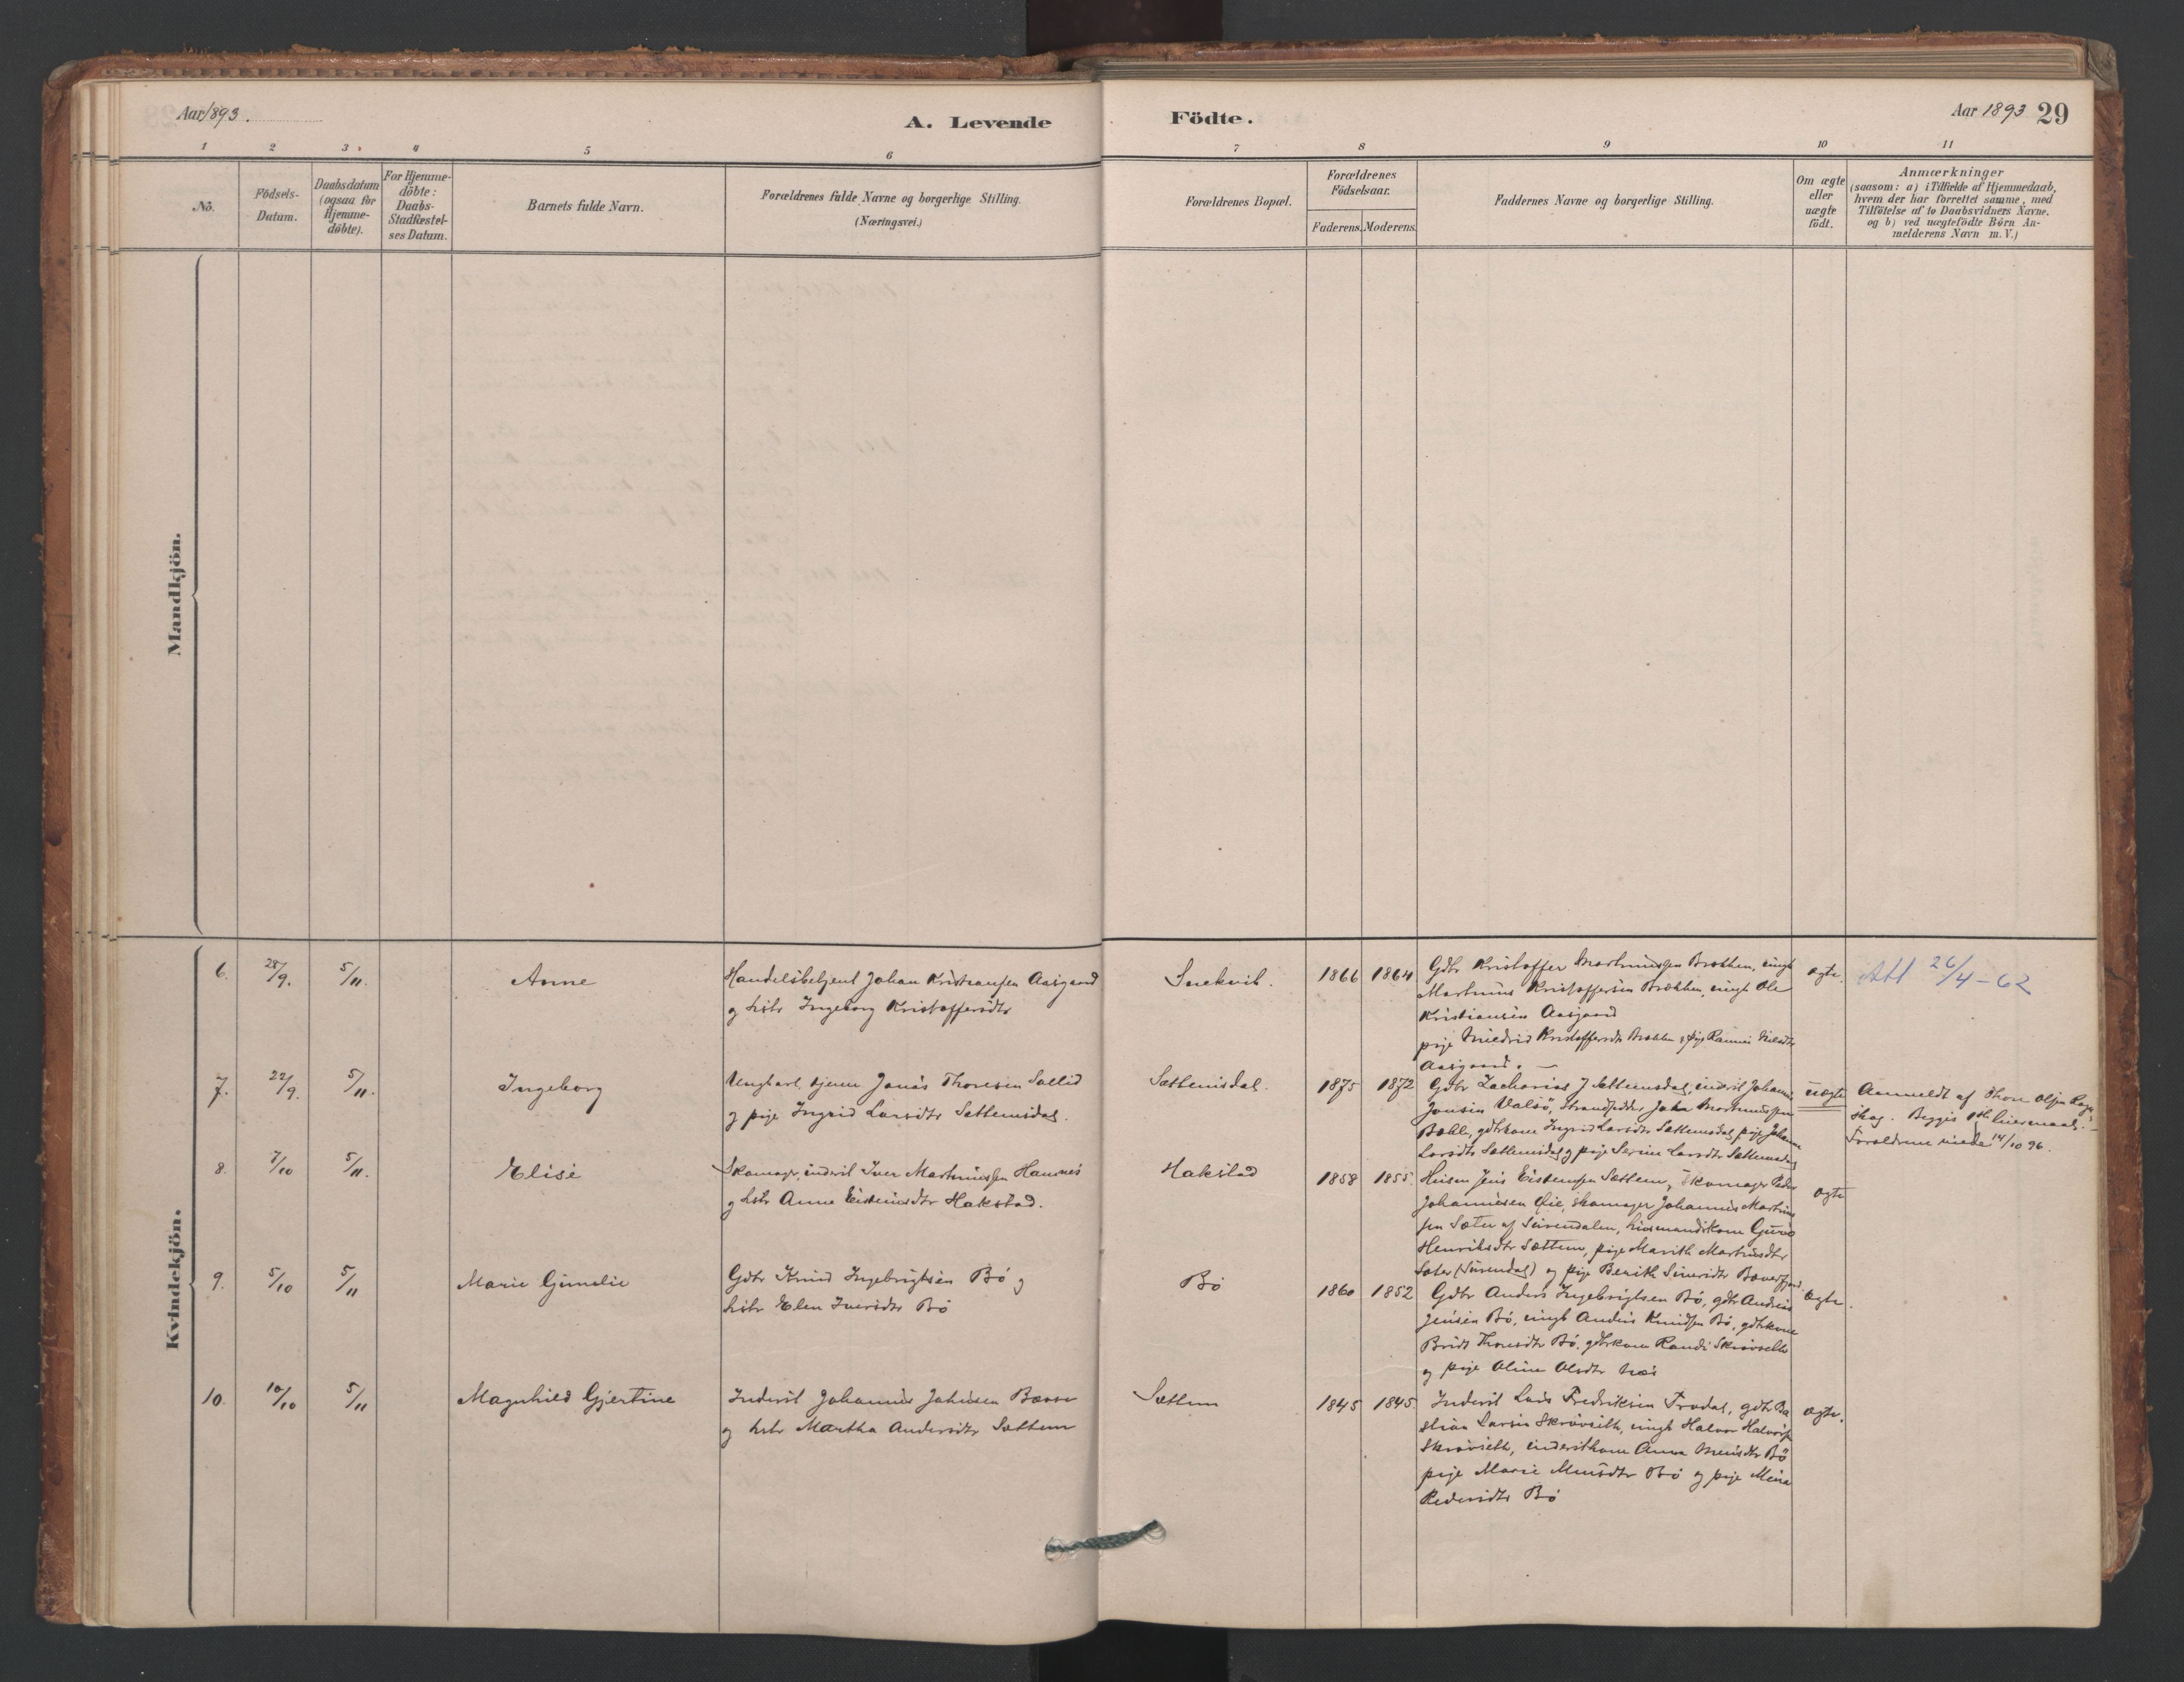 Aar 1893.
A. Levende
Födte.
Aar 1893 29
1 2 3 4 5 6 7 8 9 10 11
No.
Födsels-
Datum.
Daabsdatum
(ogsaa for
Hjemme-
döbte).
For Hjemme-
döbte:
Daabs-
Stadfæstel-
ses Datum.
Barnets fulde Navn.
Forældrenes fulde Navne og borgerlige Stilling.
(Næringsvei.)
Forældrenes Bopæl.
Forældrenes
Födselsaar.
Faderens. Moderens.
Faddernes Navne og borgerlige Stilling.
Om ægte
eller
uægte
födt.
Anmærkninger
(saasom: a) i Tilfælde af Hjemmedaab,
hvem der har forrettet samme, med
Tilföielse af to Daabsvidners Navne,
og b) ved uægtefödte Börn An-
melderens Navn m. V.)
Mandkjön.
Kvindekjön.
6. 28/9. 5/11. Anne
Handelsbetjent Johan Kristiansen Aasgaard
og hstr Ingeborg Kristoffersdtr
1866 1864
Gdbr Kristoffer Martinussen Brækken, ungk
Martinus Kristoffersen Brækken, ungk Ole
Kristiansen Aasgaard
pige Kristoffersdtr Brækken
Aasgaard. —
ægte.
26/4-62
7. 22/9. 5/11. Ingeborg
Ungkarl, tjener Jonas Thoresen Sollid
og pige Ingrid Larsdtr Settemsdal.
Settemsdal.
1875 1872
Gdbr Zacharias J Settemsdal, inderst Johannes
Jonsen Valsö, Strandsidder John Martinussen
Bækli, gdbrkone Ingrid Larsdtr Settemsdal, pige Johanne
Larsdtr Settemsdal og pige Serine Larsdtr Settemsdal
uægte
Anmeldt af Thore Olsen
skog. Begges 1ste Leiermaal. —
Forældrene viede 14/10 96.
8. 7/10 5/11. Elise
Skomager, inderst Iver Martinussen Hamnes
og hstr Anne Eistensdtr Hakstad.
Hakstad
1858 1855.
Husm Jens Eistensen Settem, Skomager Peder
Johannesen Øie, skomager Johannes Martinus
sen Sæter af Surendalen, husmandskone Guro
Henriksdtr Settem, pige Marith Martinusdtr
Sæter (Surendal) og pige Berith Siversdtr Bæverfjord.
ægte
9. 5/10 5/11 Marie Gjunelie
Gdbr Knud Ingebrigtsen Bö og
hstr Elen Iversdtr Bö
Bö
1860 1852
Gdbr Anders Ingebrigtsen Bö, gdbr Andreas
Jensen Bö, ungk Anders Knudsen Bö, gdbrkone
Bö, gdbrkone Randi Skrövseth
og pige Oline Olsdtr Næs
ægte.
10. 10/10 5/11 Magnhild Gjertine
Inderst Johannes Johnsen Bævre
og hstr Martha Andersdtr Settem
Settem
1845 1845
Inderst Lars Fredriksen Frodal, gdbr Ba
stian Larsen Skrövseth, ungk Halvor Halvorsen
Skrövseth, inderstkone Anna Bö
pige Marie Bö og pige
Pedersdtr Bö
ægte.